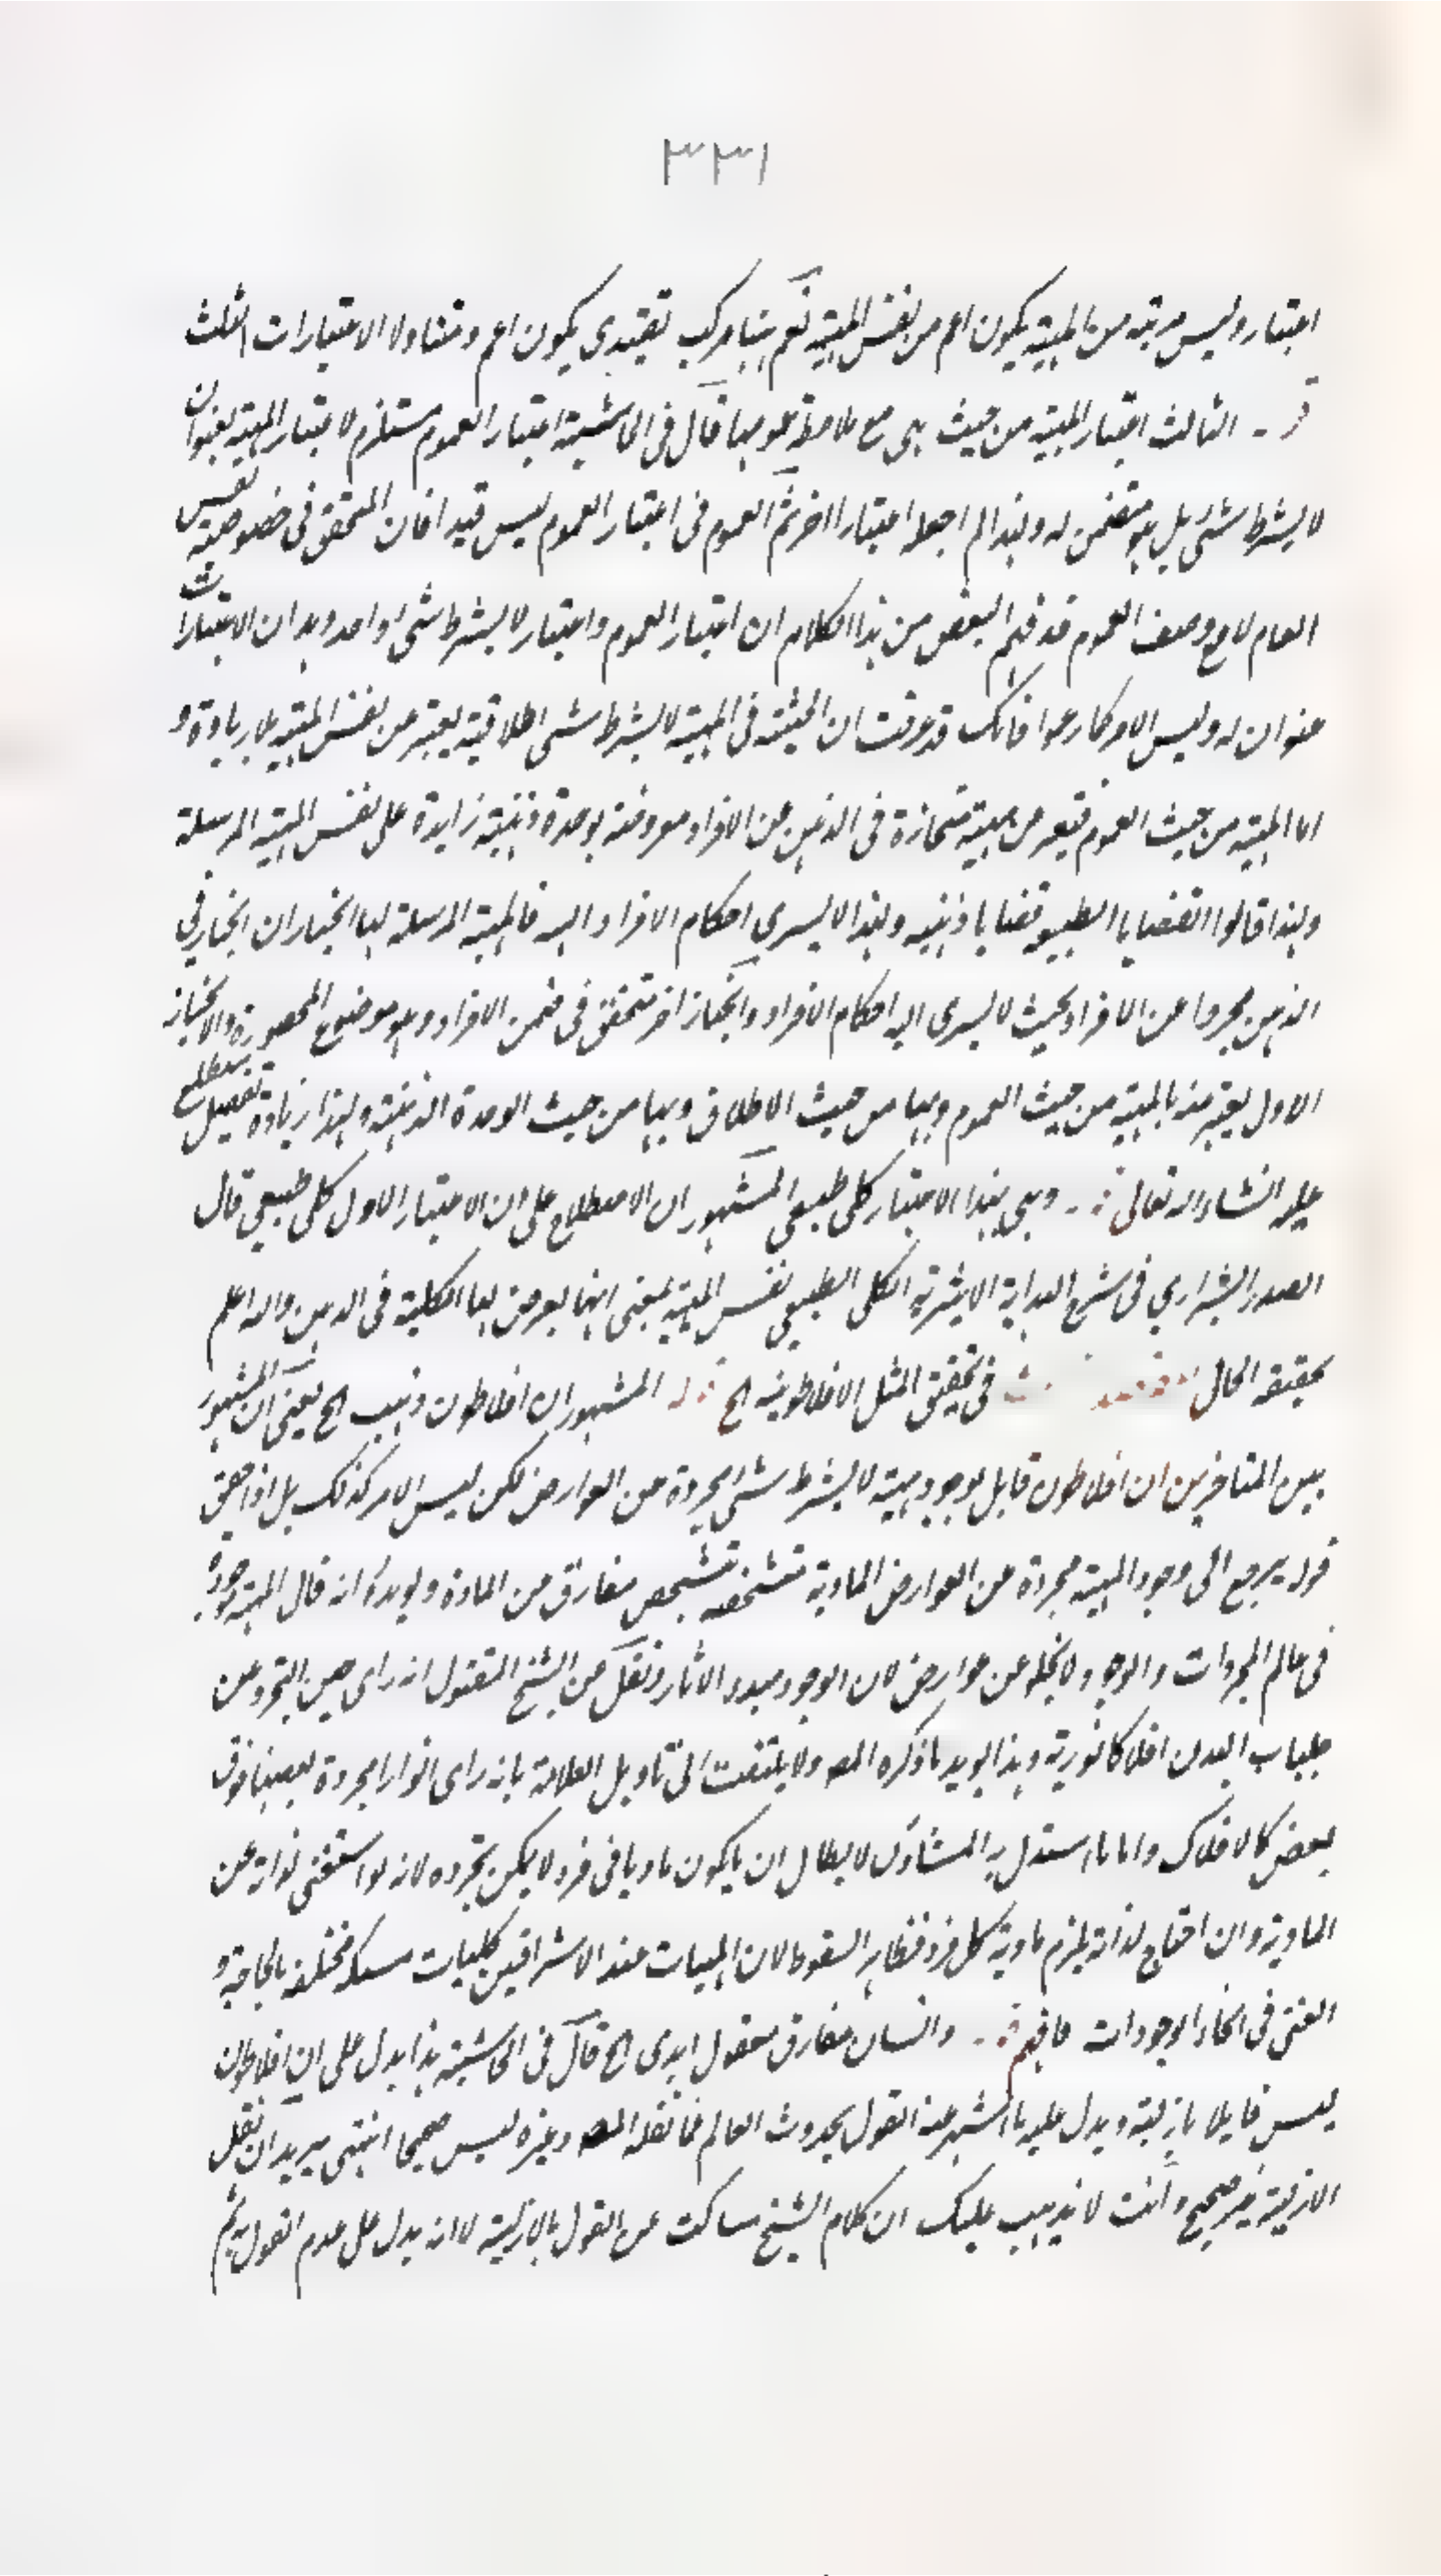 ٣٣١
اعتبار وليس مرتبة من المهية يكون اعم من نفس المهية نعم ههنا مركب تقييدى يكون اعم ومتناولا الاعتبارات الثلث
الثالث اعتبار المهية من حيث هى مع ملاحظة عمومها قال فى الحاشية اعتبار العموم مستلزم لاعتبار المهية بعنوان
لابشرط شئ بل هو متضمن له ولهذا لم اجعله اعتبارا اخر ثم العموم فى اعتبار العموم ليس قيدا فان المتحقق فى خصوصية نفس
العام لا مع وصف العموم قد فهم البعض من هذا الكلام ان اعتبار العموم واعتبار لابشرط شئ واحد وهذان الاعتبارات
عنوان له وليس الامر كما زعموا فانك قد عرفت ان الحيثية فى المهية لابشرط شئ اطلاقية يعتبر من نفس المهية بلا زيادة و
اما المهية من حيث العموم فتعبر من مهية منحازة فى الذهن من الافراد معروضة بوحدة ذهنية زايدة على نفس المهية المرسلة
ولهذا قالوا القضايا الطبيعية قضايا ذهنيه ولهذا لا يسرى احكام الافراد اليه فالمهية المرسلة لها انحيازان انحياز فى
الذهن مجردا عن الافراد بحيث لا يسرى اليه احكام الافراد وانحياز اخر متحقق فى ضمن الافراد وهو موضوع المحصورة والانحياز
الاول يعتبر منه بالمهية من حيث العموم وبها من حيث الاطلاق وبها من حيث الوحدة الذهنية ولهذا زيادة تفصيل ستطلع
عليه انشاء الله تعالى وهى بهذا الاعتبار كلى طبيعى المشهور ان الاصطلاح على ان الاعتبار الاول كلى طبيعى قال
الصدر الشيرازي فى شرح الهداية الاثيرية الكلى الطبيعى نفس المهية بمعنى انها يعرض لها الكلية فى الذهن والله اعلم
بحقيقة الحال فى تحقيق المثل الافلاطونية الخ قوله المشهور ان افلاطون ذهب الخ يعنى ان المشهور
بين المتاخرين ان افلاطون قايل بوجود مهية لابشرط شئ مجردة عن العوارض لكن ليس الامر كذلك بل اذا حقق
قوله يرجع الى وجود المهية مجردة عن العوارض المادية متشخصه بتشخص مفارق من المادة ويويده انه قال المهية موجودة
فى عالم المجردات والوجود لا يخلو عن عوارض لان الوجود مبدء الاثار ونقل من الشيخ المقتول انه راى حين التجرد عن
جلباب البدن افلاكا نورية وهذا يويد ما ذكره المصـ ولا يلتفت الى تاويل العلامة بانه راى انوارا مجردة بعضها فوق
بعض كالافلاك واما ما استدل به المشاؤن لابطال ان ما يكون ماديا فى فرد لا يمكن تجرده لانه لو استغنى لذاته عن
المادية وان احتاج لذاته يلزم مادية كل فرد فظاهر السقوط لان المهيات عند الاشراقيين كليات مشككة مختلفة بالحاجة و
الغنى فى انحاء الوجودات فافهم وانسان مفارق معقول ابدى الخ قال فى الحاشية هذا يدل على ان افلاطون
ليس قايلا بازلية ويدل عليه ما اشتهر عنه القول بحدوث العالم فما نقله المصـ وغيره ليس صحيحا انتهى يريد ان نقل
الازلية غير صحيح وانت لا يذهب عليك ان كلام الشيخ ساكت عن القول بالازلية لا انه يدل على عدم القول به ثم